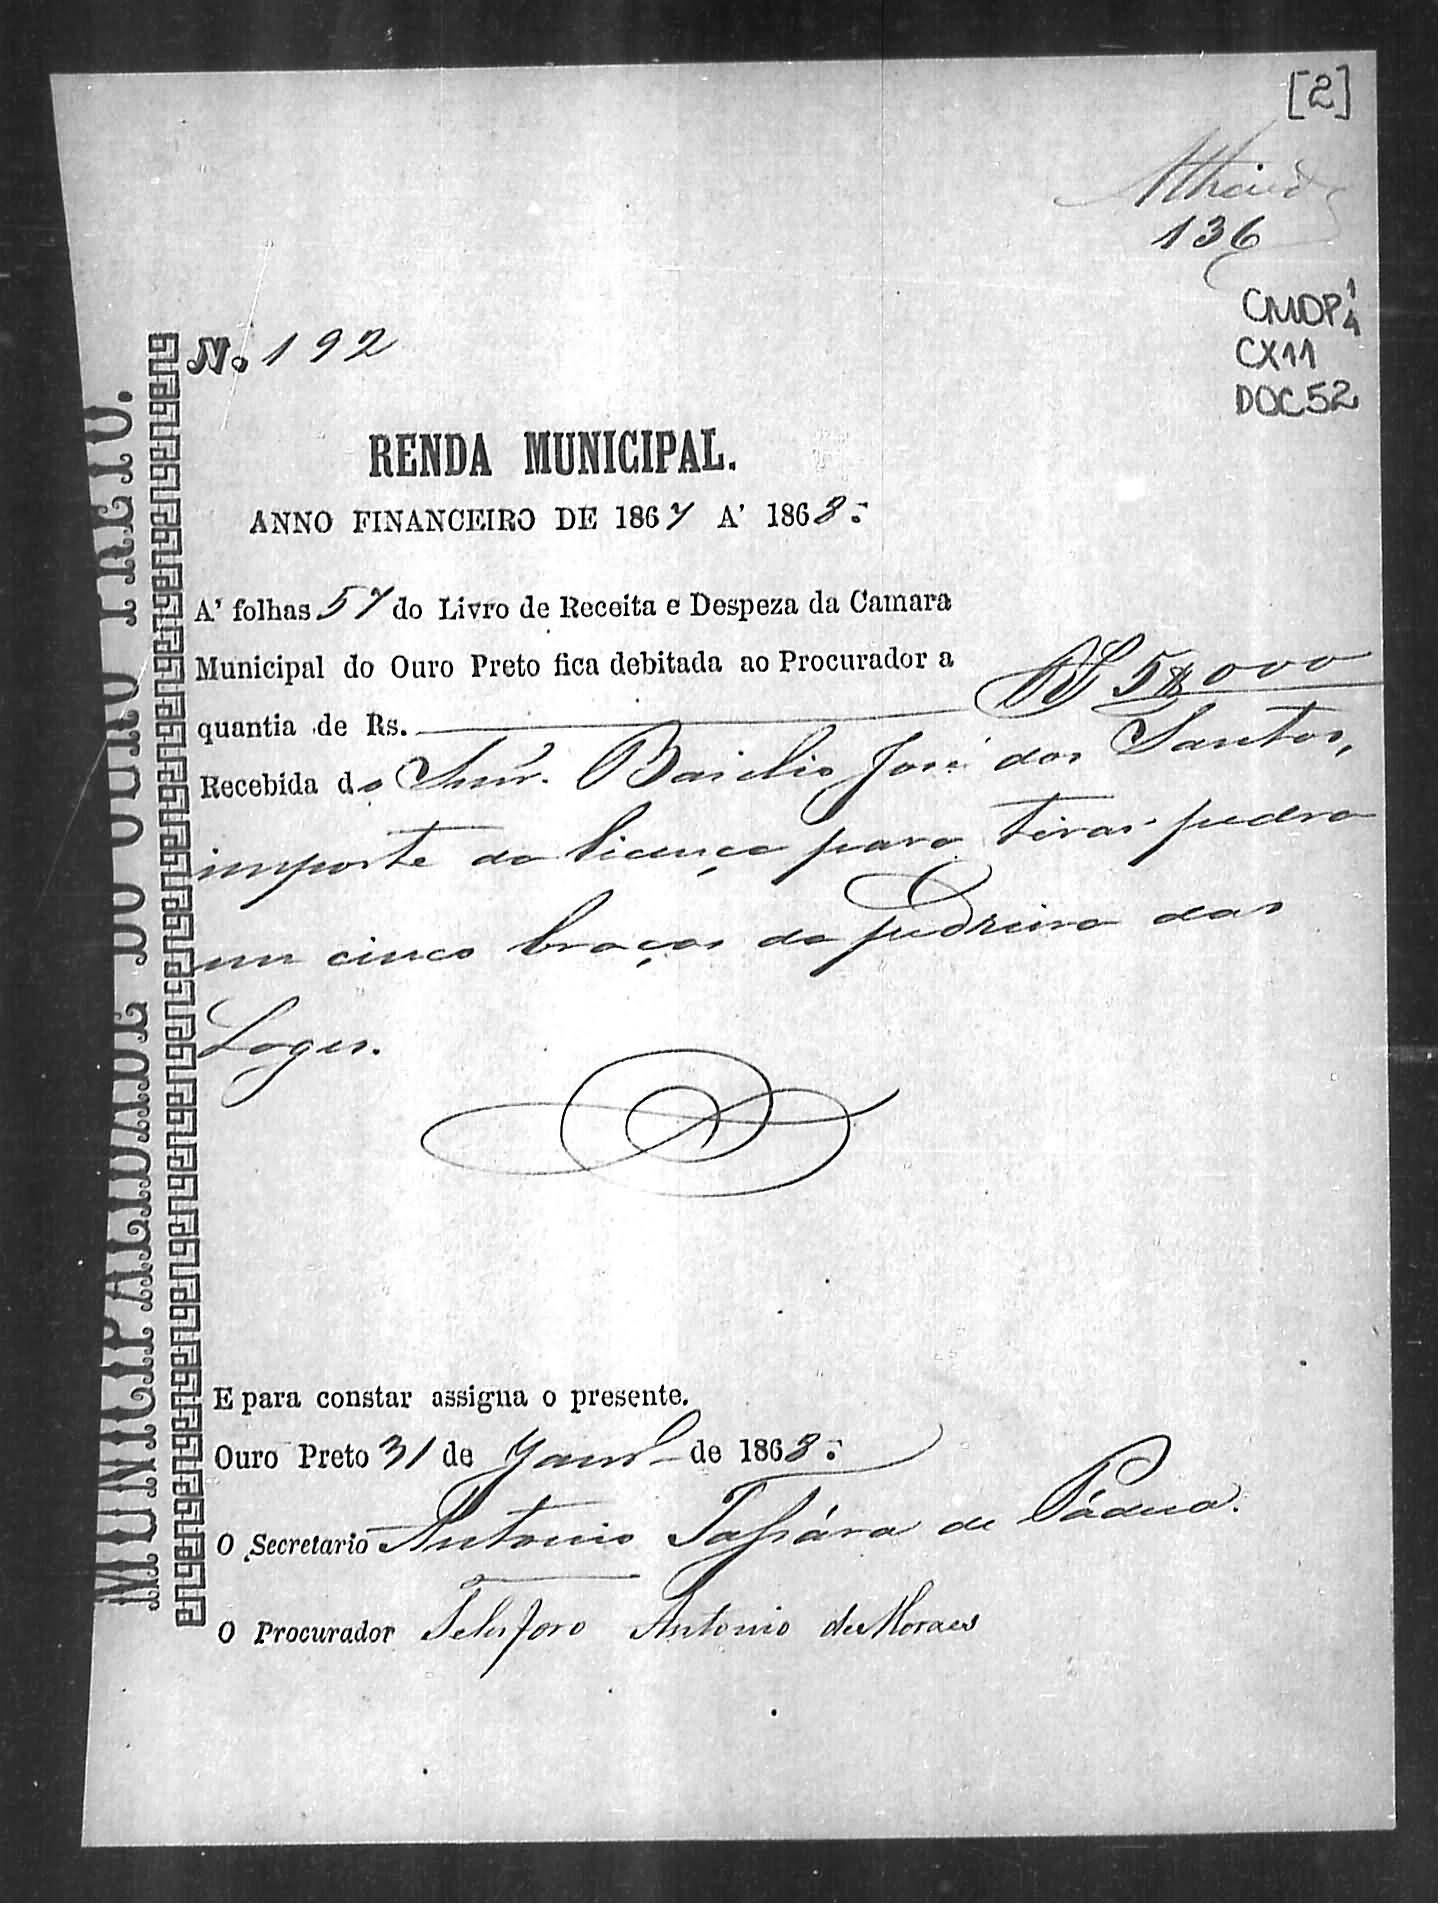 [2]
136
CMOP
CX11
DOC 52
MUNICIPALIDADE DO OURO PRETO.
N. 192
RENDA MUNICIPAL.
ANNO FINANCEIRO DE 1867 A' 1868:
A' folhas 57 do Livro de Receita e Despeza da Camara
Municipal do Ouro Preto fica debitada ao Procurador a
quantia de Rs. 5$000
Recebida do Snr. Basilio José dos Santos,
importe da licença para tirar pedra
em cinco braças da pedreira das
Lages.
E para constar assigna o presente.
Ouro Preto 31 de Janrº de 1868:
O Secretario Antonio de Pádua.
O Procurador Telesforo Antonio de Moraes